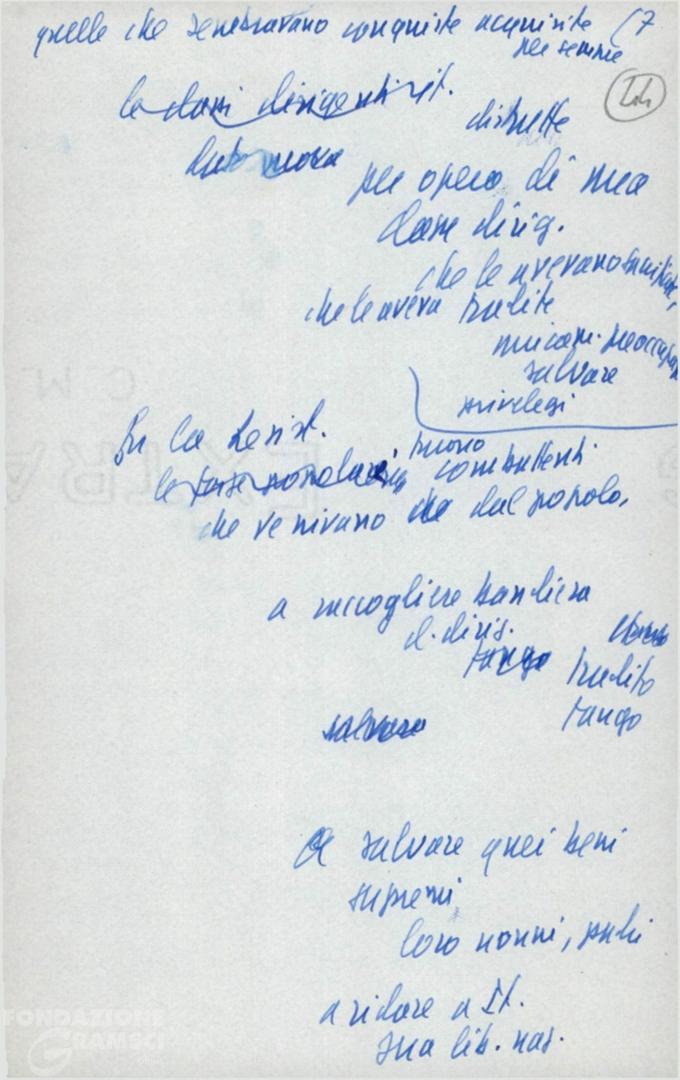 quelle che sembravano conquiste acquisite (7
per sempre
le classi dirigenti it.
distrutte
per opera di una
classe dirig.
che le avevano
che le aveva tradite
preoccup
salvare
privilegi
Fu la Resist.
le forze popolari furono combattenti
che venivano che dal popolo,
a raccogliere bandiera
d. dirig.
fango tradito
fango
salvare
A salvare quei beni
supremi
loro nonni, padri
a ridare a It.
sua lib. naz.
FONDAZIONE
GRAMSCI